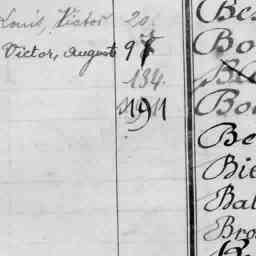 Louis, Victor 20.
Victor, Auguste 97
134.
191
Be
Bo
Bo
Be
Bie
Bal
Bro